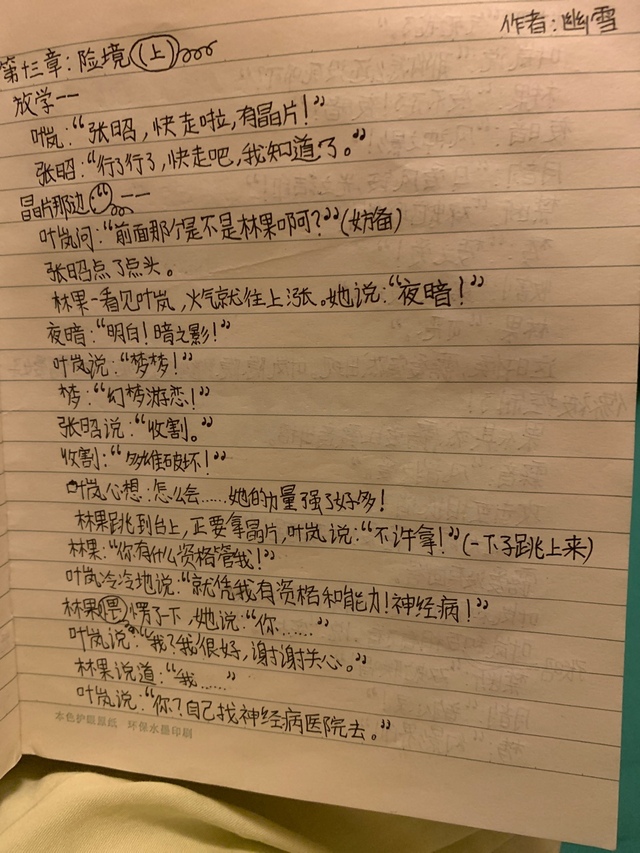 作者：幽雪
第十三章：险境（上）
放学——
叶岚：“张昭，快走啦，有晶片！”
张昭：“行了行了，快走吧，我知道了。”
晶片那边——
叶岚问：“前面那个是不是林果啊？”（妨备）
张昭点了点头。
林果一看见叶岚，火气就往上涨。她说：“夜暗！”
夜暗：“明白！暗之影！”
叶岚说：“梦梦！”
梦：“幻梦游恋！”
张昭说：“收割。”
收割：“多维破坏！”
叶岚心想：怎么会……她的力量强了好多！
林果跳到台上，正要拿晶片，叶岚说：“不许拿！”（一下子跳上来）
林果：“你有什么资格管我！”
叶岚冷冷地说：“就凭我有资格和能力！神经病！”
林果愣了一下，她说：“你……”
叶岚说：“我？我很好，谢谢关心。”
林果说道：“我……”
叶岚说：“你？自己找神经病医院去。”
本色护眼原纸 环保水墨印刷